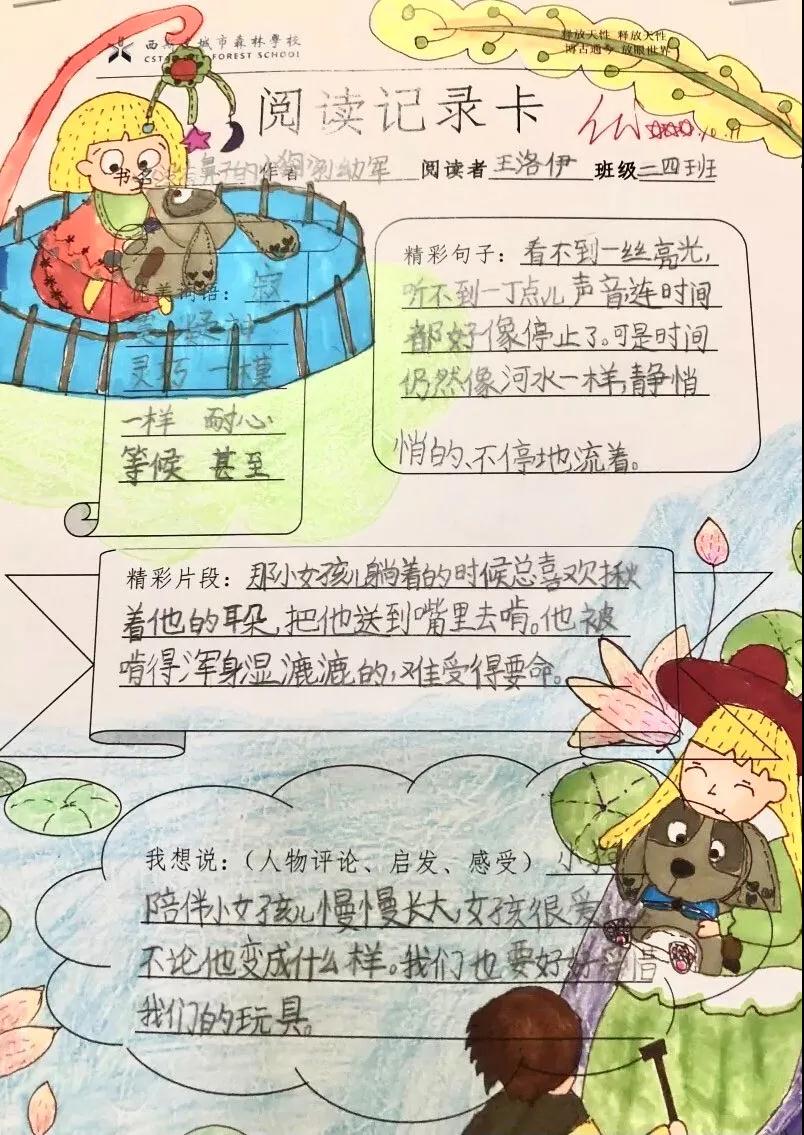 西 城市森林學校
CST FOREST SCHOOL
释放天性 释放天性
博古通今 放眼世界
阅读记录卡
书名 鼻子的小狗 作者 刘幼军 阅读者 王洛伊 班级 二四班
优美词语：寂
灵巧 一模
一样 耐心
等候 甚至
精彩句子：看不到一丝亮光，
听不到一丁点儿声音，连时间
都好像停止了。可是时间
仍然像河水一样，静悄
悄的、不停地流着。
精彩片段：那小女孩儿躺着的时候总喜欢揪
着他的耳朵，把他送到嘴里去啃。他被
啃得浑身湿漉漉的，难受得要命。
我想说：（人物评论、启发、感受）小
陪伴小女孩儿慢慢长大，女孩很爱
不论他变成什么样。我们也要好好 惜
我们的玩具。